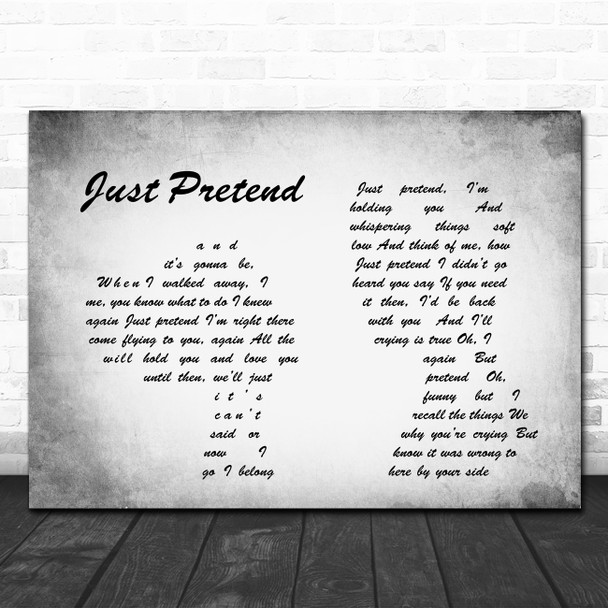 Just Pretend
a n d
it's gonna be,
When I walked away, I
me, you know what to do I knew
again Just pretend I'm right there
come flying to you, again All the
will hold you and love you
until then, we'll just
i t ' s
can't
said or
now I
go I belong
Just pretend, I'm
holding you And
whispering things soft
low And think of me, how
Just pretend I didn't go
heard you say If you need
it then, I'd be back
with you And I'll
crying is true Oh, I
again But
pretend Oh,
funny but I
recall the things We
why you're crying But
know it was wrong to
here by your side